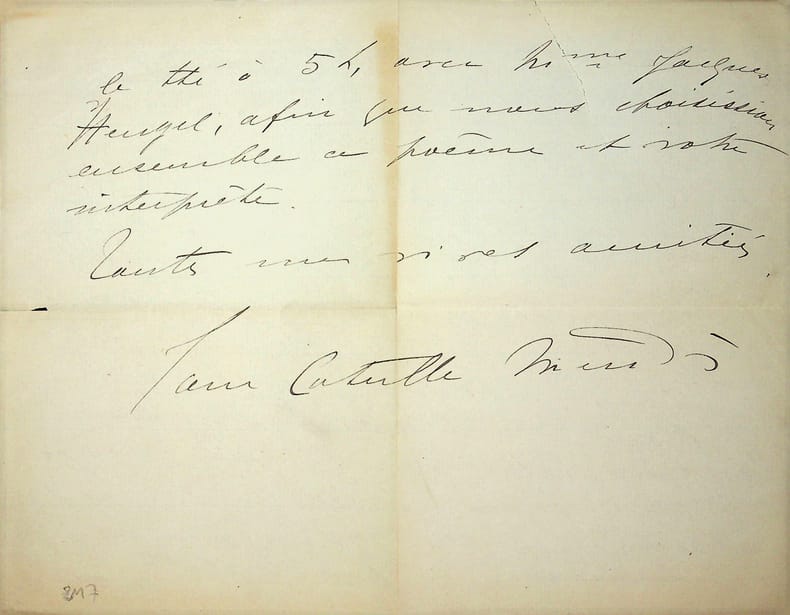 le thé à 5 h, avec Mme Jacques
Heugel, afin que nous choisissions
ensemble ce poème et votre
interprète.
Toutes mes vives amitiés.
Jane Catulle Mendès
2M7